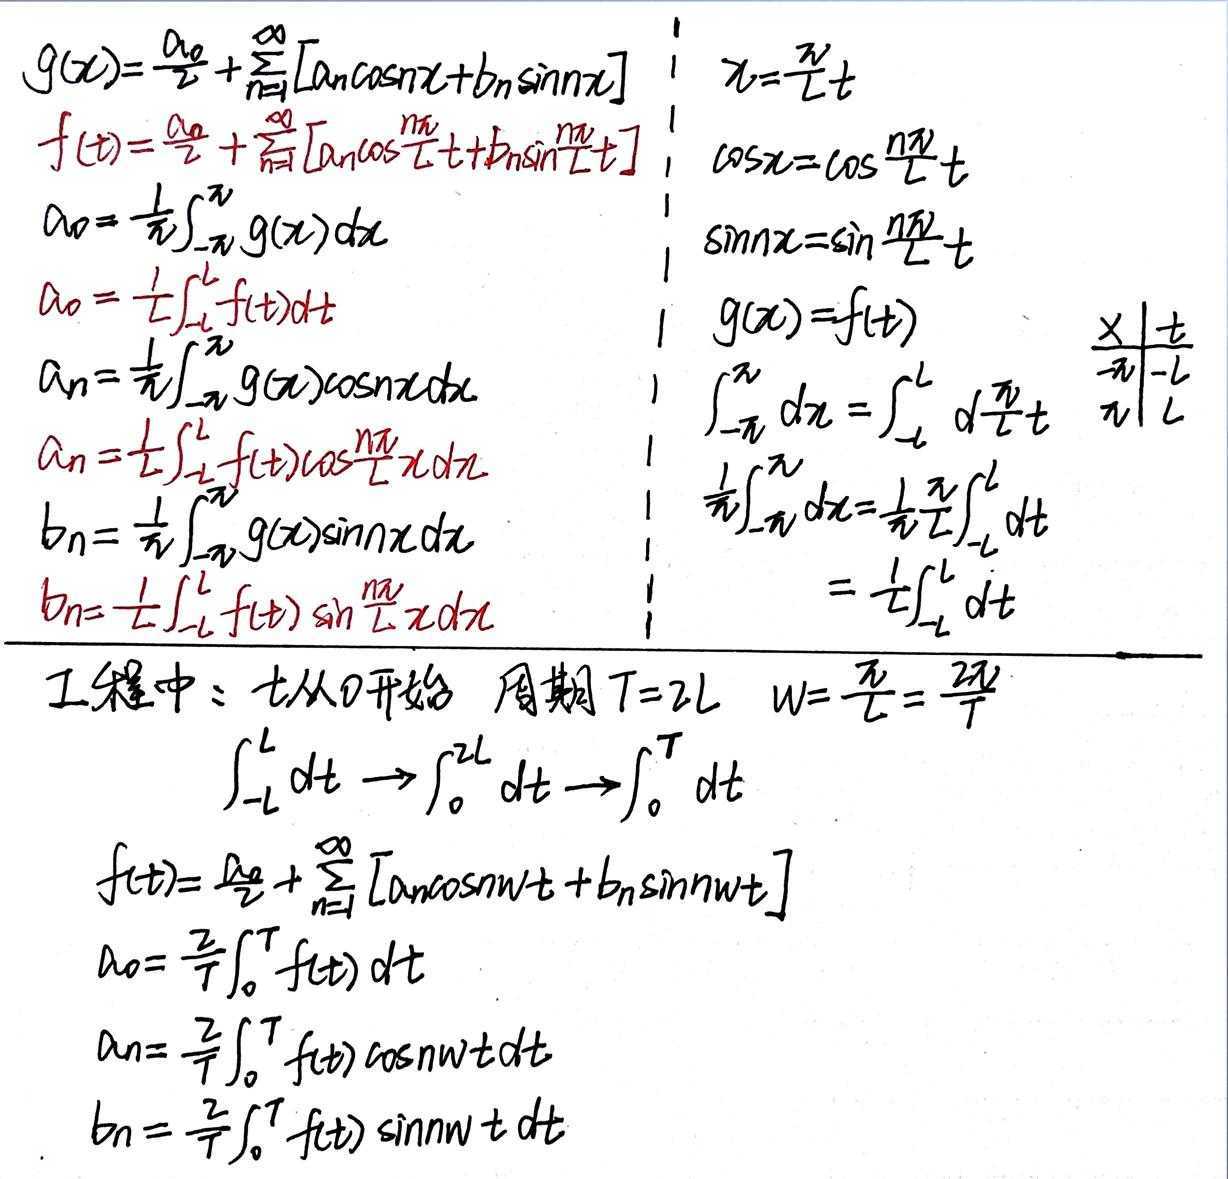 g(x)=a₀/2+∑_{n=1}^{∞}[aₙcosnx+bₙsinnx]
f(t)=a₀/2+∑_{n=1}^{∞}[aₙcos nπ/L t+bₙsin nπ/L t]
a₀=1/π∫_{-π}^{π}g(x)dx
a₀=1/L∫_{-L}^{L}f(t)dt
aₙ=1/π∫_{-π}^{π}g(x)cosnxdx
aₙ=1/L∫_{-L}^{L}f(t)cos nπ/L xdx
bₙ=1/π∫_{-π}^{π}g(x)sinnxdx
bₙ=1/L∫_{-L}^{L}f(t)sin nπ/L xdx
x=π/L t
cosx=cos nπ/L t
sinnx=sin nπ/L t
g(x)=f(t)
∫_{-π}^{π}dx=∫_{-L}^{L}d π/L t
1/π∫_{-π}^{π}dx=1/π π/L∫_{-L}^{L}dt
=1/L∫_{-L}^{L}dt
x t
-π -L
π L
工程中：t从0开始 周期T=2L w=π/L=2π/T
∫_{-L}^{L}dt→∫_{0}^{2L}dt→∫_{0}^{T}dt
f(t)=a₀/2+∑_{n=1}^{∞}[aₙcosnwt+bₙsinnwt]
a₀=2/T∫_{0}^{T}f(t)dt
aₙ=2/T∫_{0}^{T}f(t)cosnwtdt
bₙ=2/T∫_{0}^{T}f(t)sinnwtdt